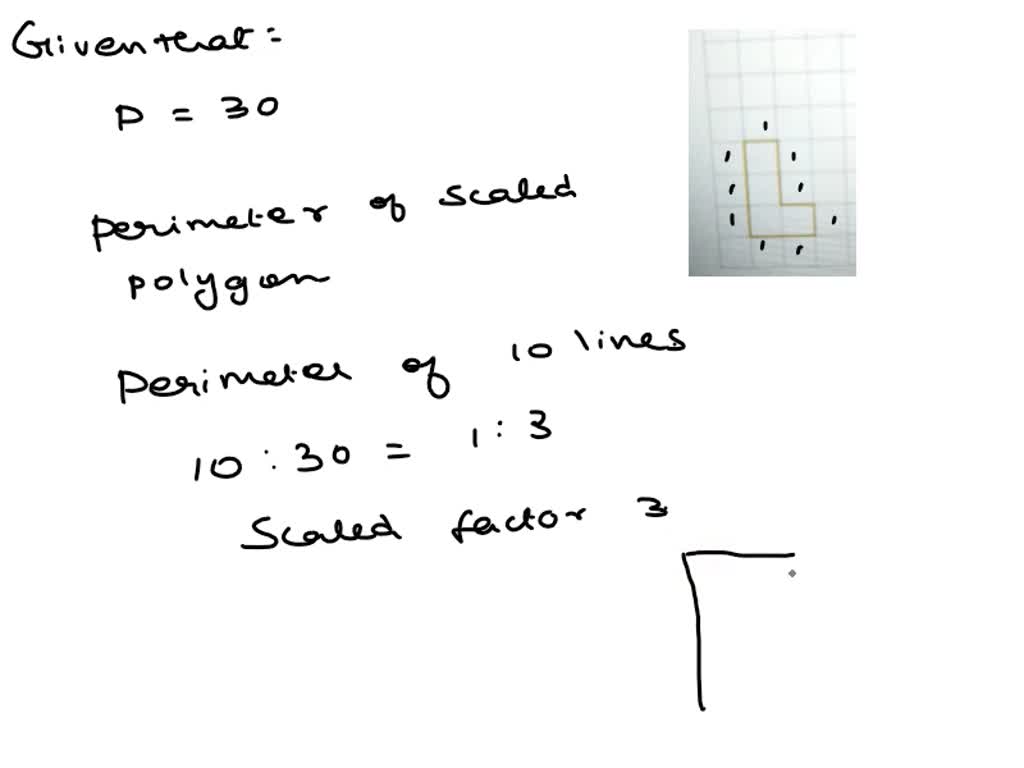 Given that :
P = 30
Perimeter of scaled
polygon
Perimeter of 10 lines
10 : 30 = 1 : 3
Scaled factor 3
1
1 1
1 1
1 1
1 1